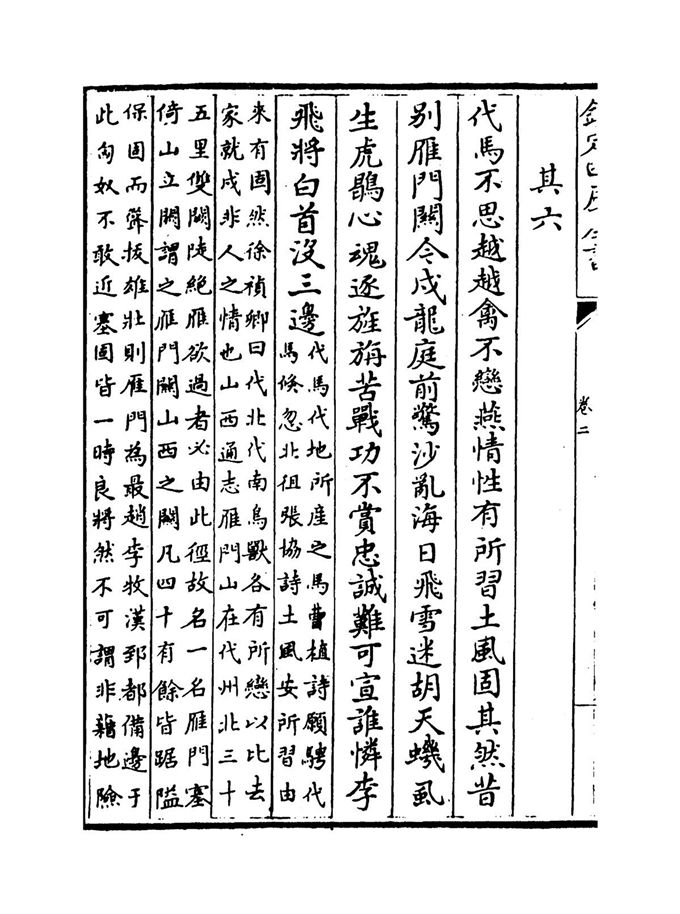 欽定四庫全書
卷二
其六
代馬不思越越禽不戀燕情性有所習土風固其然昔
别雁門闗今戍龍庭前驚沙亂海日飛雪迷胡天蟣虱
生虎鶡心魂逐旌旃苦戰功不賞忠誠難可宣誰憐李
飛將白首没三邊
代馬代地所産之馬曹植詩願騁代
馬倐忽北徂張協詩土風安所習由
來有固然徐禎卿曰代北代南鳥獸各有所戀以比去
家就戍非人之情也山西通志雁門山在代州北三十
五里雙闕陡絶雁欲過者必由此徑故名一名雁門塞
倚山立闗謂之雁門闗山西之闗凡四十有餘皆踞隘
保固而聳拔雄壯則雁門為最趙李牧漢郅都備邊于
此匈奴不敢近塞固皆一時良將然不可謂非藉地險